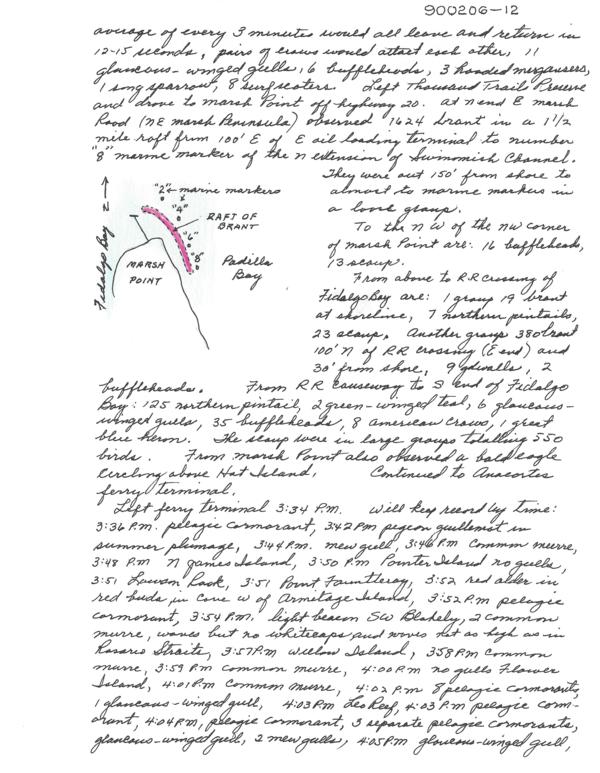 900206-12
average of every 3 minutes would all leave and return in
12-15 seconds, pairs of crows would attack each other, 11
glaucous-winged gulls, 6 buffleheads, 3 hooded mergansers,
1 song sparrow, 8 surf scoters. Left Thousand Trails Preserve
and drove to Marsh Point off highway 20. At N end E marsh
Road (NE Marsh Peninsula) observed 1624 brant in a 1 1/2
mile raft from 100' E of E oil loading terminal to number
"8" marine marker of the N extension of Swinomish Channel.
They were out 150' from shore to
almost to marine markers in
a loose group.
To the NW of the NW corner
of Marsh Point are: 16 buffleheads,
13 scaup.
From above to RR crossing of
Fidalgo Bay are: 1 group 19 brant
at shoreline, 7 northern pintails,
23 scaup. Another group 380 brant
100' N of RR crossing (E end) and
30' from shore, 9 gadwalls, 2
Fidalgo Bay N →
"2" ← marine markers
"4"
RAFT OF
BRANT
"6"
"8"
MARSH
POINT
Padilla
Bay
buffleheads. From RR causeway to S end of Fidalgo
Bay: 125 northern pintail, 2 green-winged teal, 6 glaucous-
winged gulls, 35 buffleheads, 8 american crows, 1 great
blue heron. The scaup were in large groups totalling 550
birds. From Marsh Point also observed a bald eagle
circling above Hat Island. Continued to Anacortes
ferry terminal.
Left ferry terminal 3:34 P.M. Will keep record by time:
3:36 P.M. pelagic cormorant, 3:42 PM pigeon guillemot in
summer plumage, 3:44 P.M. mew gull, 3:46 P.M common murre,
3:48 P.M N James Island, 3:50 P.M Pointer Island no gulls,
3:51 Lawson Rock, 3:51 Point Fauntleroy, 3:52 red alder in
red buds in cove W of Armitage Island, 3:52 P.M pelagic
cormorant, 3:54 P.M. light beacon SW Blakely, 2 common
murre, waves but no whitecaps and waves not as high as in
Rosario Straits, 3:57 P.M Willow Island, 3:58 P.M common
murre, 3:59 P.M common murre, 4:00 P.M no gulls Flower
Island, 4:01 P.M common murre, 4:02 P.M. 8 pelagic cormorants,
1 glaucous-winged gull, 4:03 P.M Leo Reef, 4:03 P.M pelagic corm-
orant, 4:04 P.M, pelagic cormorant, 3 separate pelagic cormorants,
glaucous-winged gull, 2 mew gulls, 4:05 P.M glaucous-winged gull,